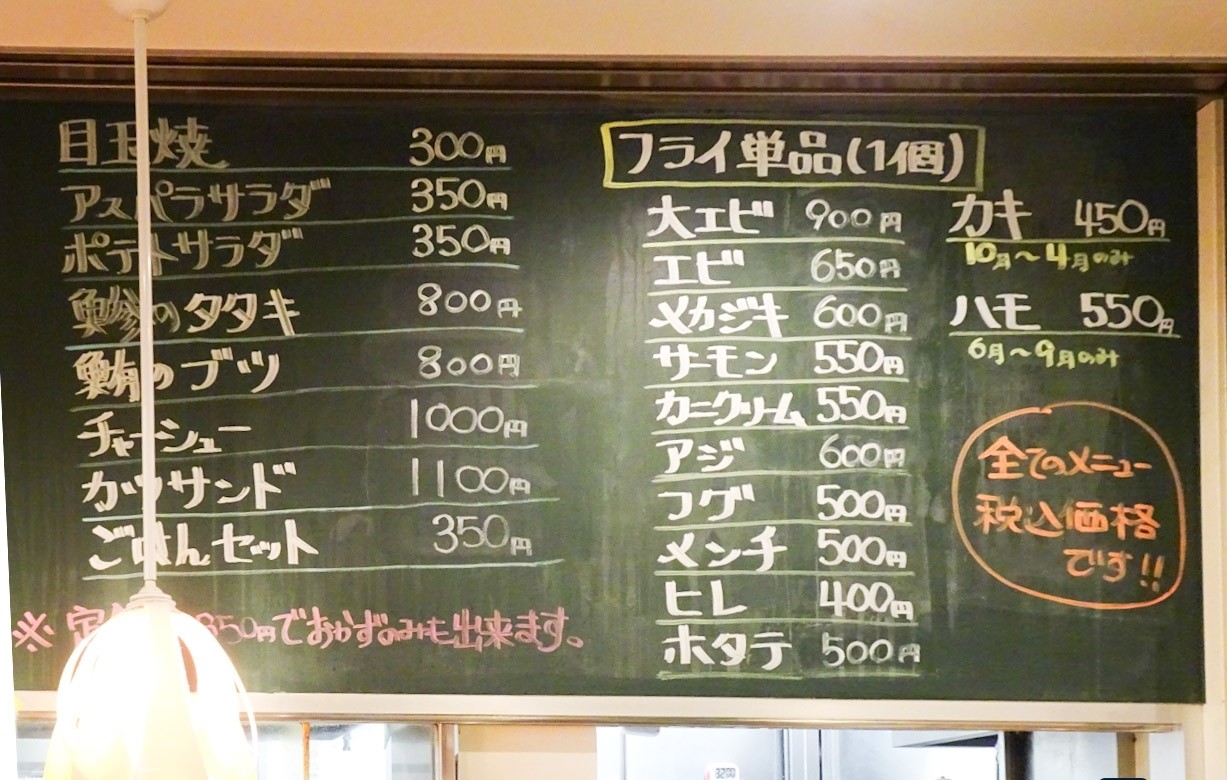 目玉焼 300円
アスパラサラダ 350円
ポテトサラダ 350円
鰺のタタキ 800円
鮪のブツ 800円
チャーシュー 1000円
カツサンド 1100円
ごはんセット 350円
※定 850円でおかずのみも出来ます。
フライ単品(1個)
大エビ 900円
エビ 650円
メカジキ 600円
サーモン 550円
カニクリーム 550円
アジ 600円
フグ 500円
メンチ 500円
ヒレ 400円
ホタテ 500円
カキ 450円
10月〜4月のみ
ハモ 550円
6月〜9月のみ
全てのメニュー
税込価格
です!!